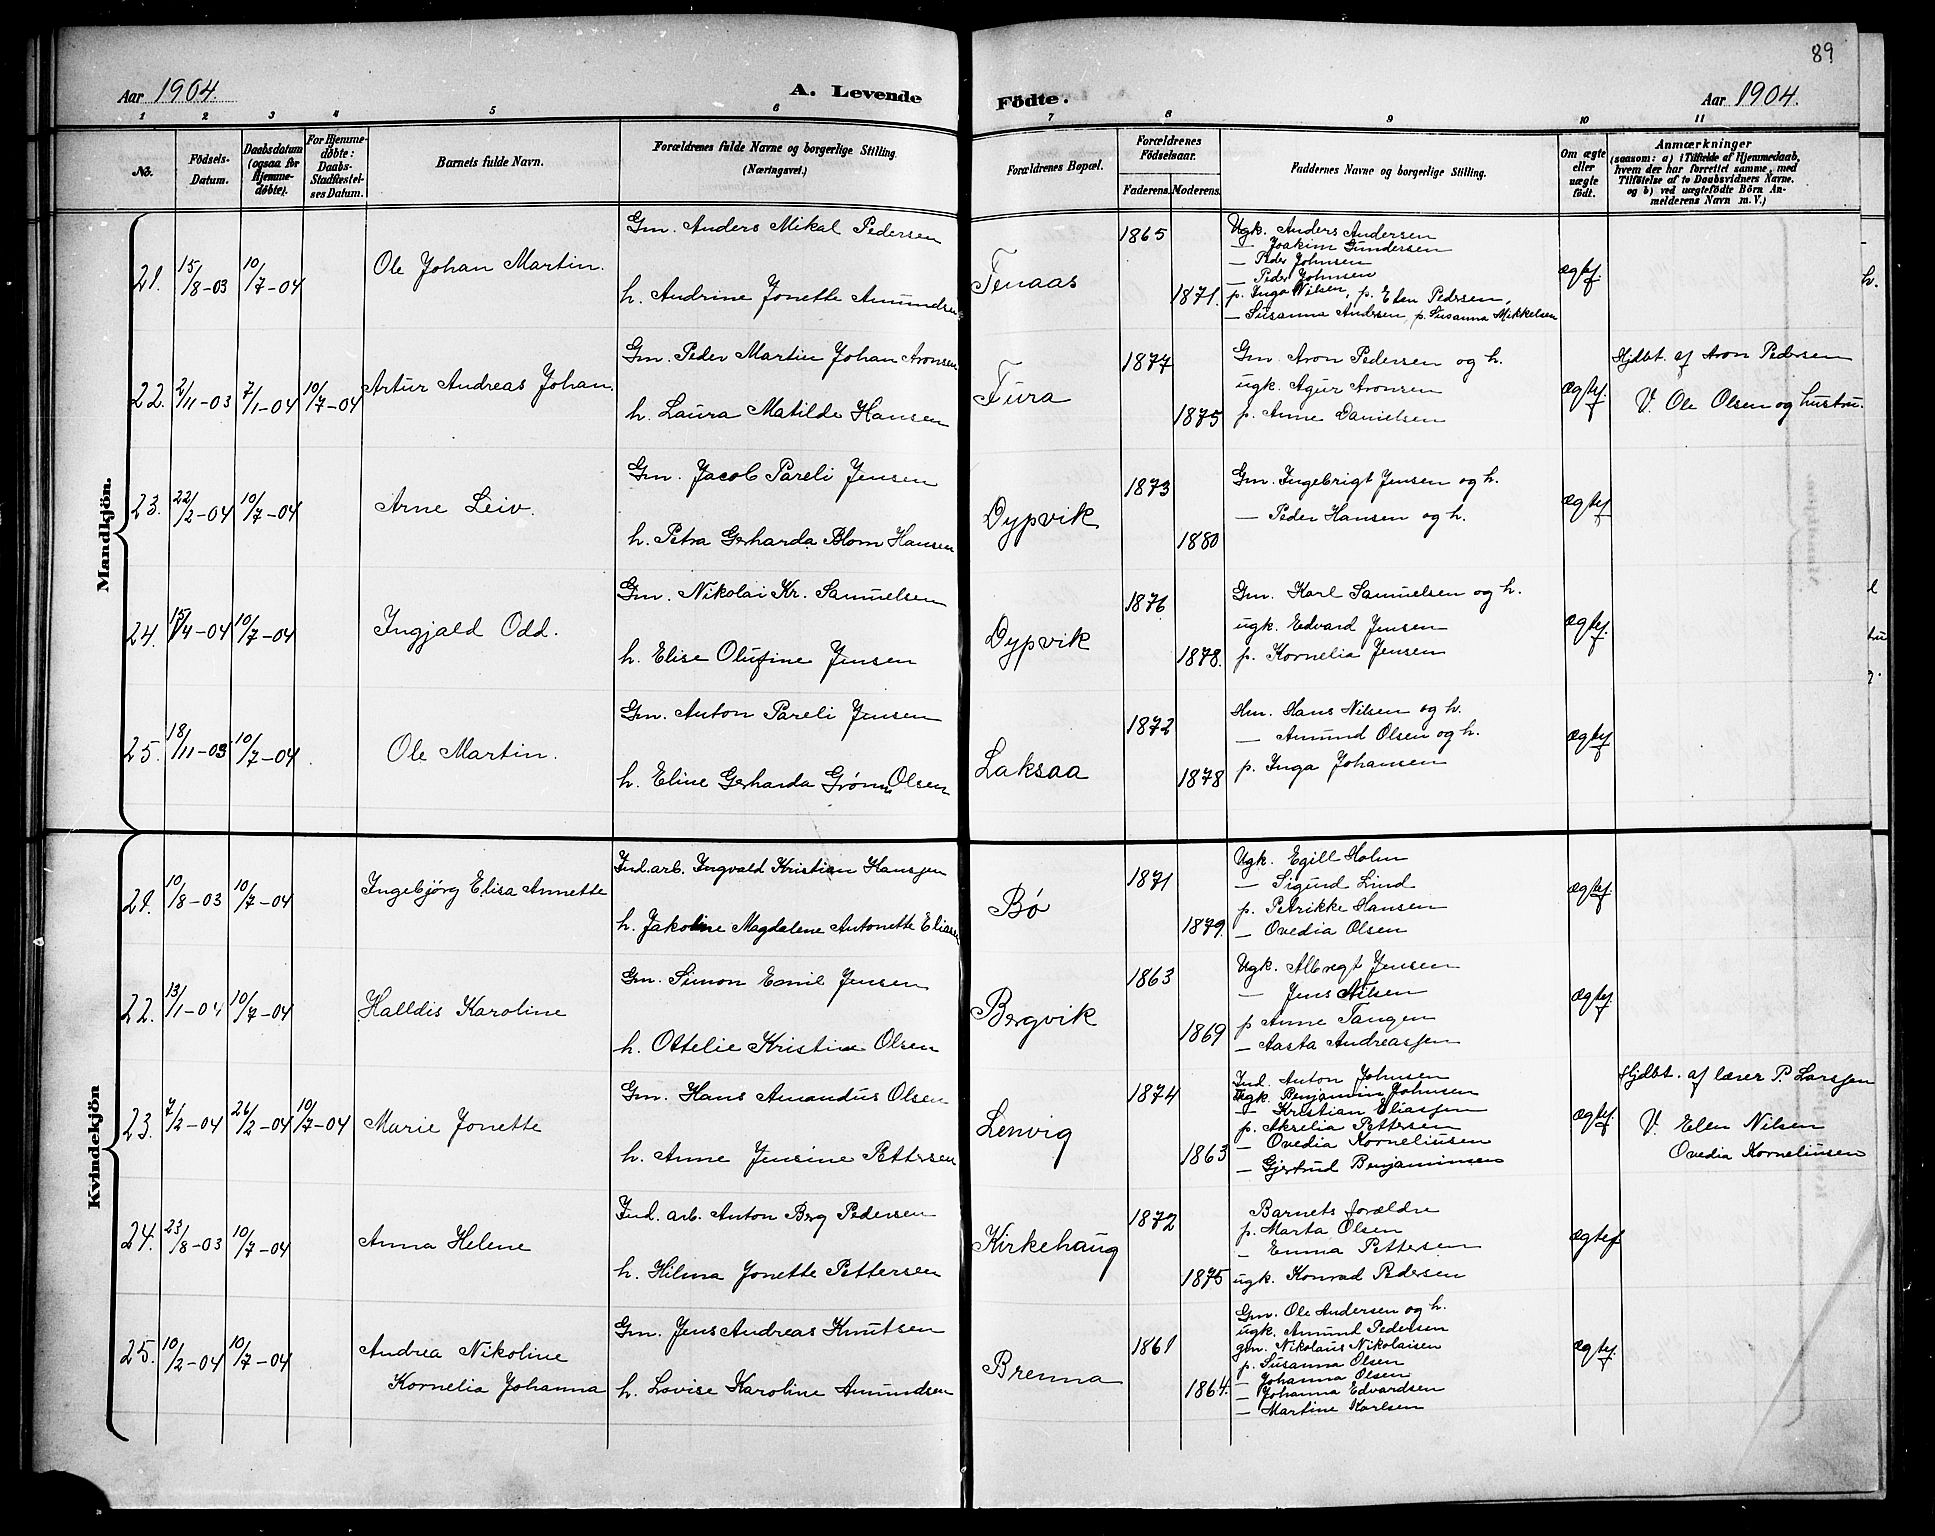 89
Aar 1904.
A. Levende
Födte.
Aar 1904.
1 2 3 4 5 6 7 8 9 10 11
No.
Födsels-
Datum.
Daabsdatum
(ogsaa for
Hjemme-
döbte).
For Hjemme-
døbte:
Daabs-
Stadfæstel-
ses Datum.
Barnets fulde Navn.
Forældrenes fulde Navne og borgerlige Stilling.
(Næringsvei.)
Forældrenes Bopæl.
Forældrenes
Födselsaar.
Faderens. Moderens.
Faddernes Navne og borgerlige Stilling.
Om ægte
eller
uægte
født.
Anmærkninger
(saasom: a) i Tilfælde af Hjemmedaab,
hvem der har forrettet samme, med
Tilføielse af to Daabsvidners Navne.
og b) ved uægtefödte Börn An-
melderens Navn m. V.)
Mandkjön.
21. 15/8-03 10/7-04
Ole Johan Martin.
Gm. Anders Mikal Pedersen
h. Andrine Jonette Amundsen
Tenaas
1865
1871.
Ugk. Anders Andersen
— Joakim Gundersen
— Peder Johnsen
— Peder Johnsen
p. Inga Nilsen, p. Elen Pedersen,
— Susanna Andersen, p. Susanna Mikkelsen
ægtef.
22. 2/11-03 7/1-04 10/7-04
Artur Andreas Johan.
Gm. Peder Martin Johan Aronsen
h. Laura Matilde Hansen
Tura
1877
1875
Gm. Aron Pedersen og h.
ugk. Agur Aronsen
p. Anne Danielsen
ægtef.
Hjdbt. af Aron Pedersen
V. Ole Olsen og hustru.
23. 22/2-04 10/7-04
Arne Leiv.
Gm. Jacob Pareli Jensen
h. Petra Gerharda Blom Hansen
Dypvik
1873
1880
Gm. Ingebrigt Jensen og h.
— Peder Hansen og h.
ægtef
24. 15/4-04 10/7-04
Ingjald Odd.
Gm. Nikolai Kr. Samuelsen
h. Elise Olufine Jensen
Dypvik
1876
1878.
Gm. Karl Samuelsen og h.
ugk. Edvard Jensen
p. Kornelia Jensen
ægtef.
25. 18/11-03 10/7-04
Ole Martin.
Gm. Anton Pareli Jensen
h. Eline Gerharda Grønn Olsen
Laksaa
1872
1878
Hm. Hans Nilsen og h.
— Amund Olsen og h.
p. Inga Johansen
ægtef
Kvindekjön
21. 10/8-03 10/7-04
Ingebjörg Elisa Annette
Ind. arb. Ingvald Kristian Hanssen
h. Jakobine Magdalene Antonette Eliasen
Bø
1871
1879.
Ugk. Egill Holm
— Sigurd Lind
p. Petrikke Hansen
— Ovedia Olsen
ægtef.
22. 13/1-04 10/7-04
Halldis Karoline
Gm. Simon Emil Jensen
h. Ottelie Kristine Olsen
Bergvik
1863
1869
Ugk. Albregt Jensen
— Jens Nilsen
p Anne Tangen
— Aasta Andreassen
ægtef.
23. 7/2-04 26/2-04 10/7-04
Marie Jonette
Gm. Hans Amandus Olsen
h. Anne Jensine Pettersen
Lenvig
1874
1863
Ind. Anton Johnsen
Ugk. Benjamin Johnsen
— Kristian Eliassen
p. Akrelia Pettersen
— Ovedia Korneliusen
— Gjertrud Benjaminsen
ægtef.
Hjdbt. af lærer P. Larssen
V. Elen Nilsen
Ovedia Korneliusen
24. 23/8-03 10/7-04
Anna Helene
Ind. arb. Anton Berg Pedersen
h. Hilma Jonette Pettersen
Kirkehaug
1872
1875
Barnets forældre
p. Marta Olsen
— Emma Pettersen
ugk. Konrad Pedersen
ægtef
25. 10/2-04 10/7-04
Andrea Nikoline
Kornelia Johanna
Gm. Jens Andreas Knutsen
h. Lovise Karoline Amundsen
Brenna
1861
1864.
Gm. Ole Andersen og h.
ugk. Amund Pedersen
gm. Nikolaus Nikolaisen
p. Susanna Olsen
— Johanna Olsen
— Johanna Edvardsen
— Martine Karlsen
ægtef.